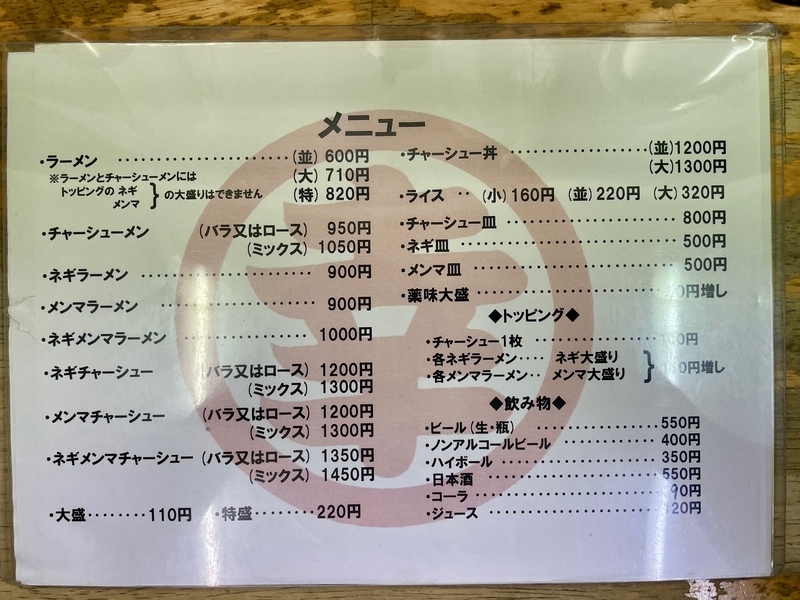 メニュー
・ラーメン ‥‥‥‥‥‥‥‥ (並) 600円
※ラーメンとチャーシューメンには (大) 710円
トッピングの ネギ
メンマ } の大盛りはできません (特) 820円
・チャーシューメン (バラ又はロース) 950円
(ミックス) 1050円
・ネギラーメン ‥‥‥‥‥‥‥‥ 900円
・メンマラーメン ‥‥‥‥‥‥‥‥ 900円
・ネギメンマラーメン ‥‥‥‥‥‥ 1000円
・ネギチャーシュー (バラ又はロース) 1200円
(ミックス) 1300円
・メンマチャーシュー (バラ又はロース) 1200円
(ミックス) 1300円
・ネギメンマチャーシュー (バラ又はロース) 1350円
(ミックス) 1450円
・大盛‥‥‥‥110円 ・特盛‥‥‥‥220円
・チャーシュー丼 ‥‥‥‥‥‥‥‥ (並)1200円
(大)1300円
・ライス ‥ (小)160円 (並)220円 (大)320円
・チャーシュー皿 ‥‥‥‥‥‥‥‥ 800円
・ネギ皿 ‥‥‥‥‥‥‥‥‥‥ 500円
・メンマ皿 ‥‥‥‥‥‥‥‥‥‥ 500円
・薬味大盛 ‥‥‥‥‥‥‥‥‥‥ 円増し
◆トッピング◆
・チャーシュー1枚 ‥‥‥‥‥‥‥‥ 円
・各ネギラーメン‥‥ ネギ大盛り
・各メンマラーメン‥ メンマ大盛り } 円増し
◆飲み物◆
・ビール(生・瓶) ‥‥‥‥‥‥‥‥550円
・ノンアルコールビール ‥‥‥‥‥‥ 400円
・ハイボール ‥‥‥‥‥‥‥‥‥ 350円
・日本酒 ‥‥‥‥‥‥‥‥‥‥550円
・コーラ ‥‥‥‥‥‥‥‥‥‥ 円
・ジュース ‥‥‥‥‥‥‥‥‥‥ 円